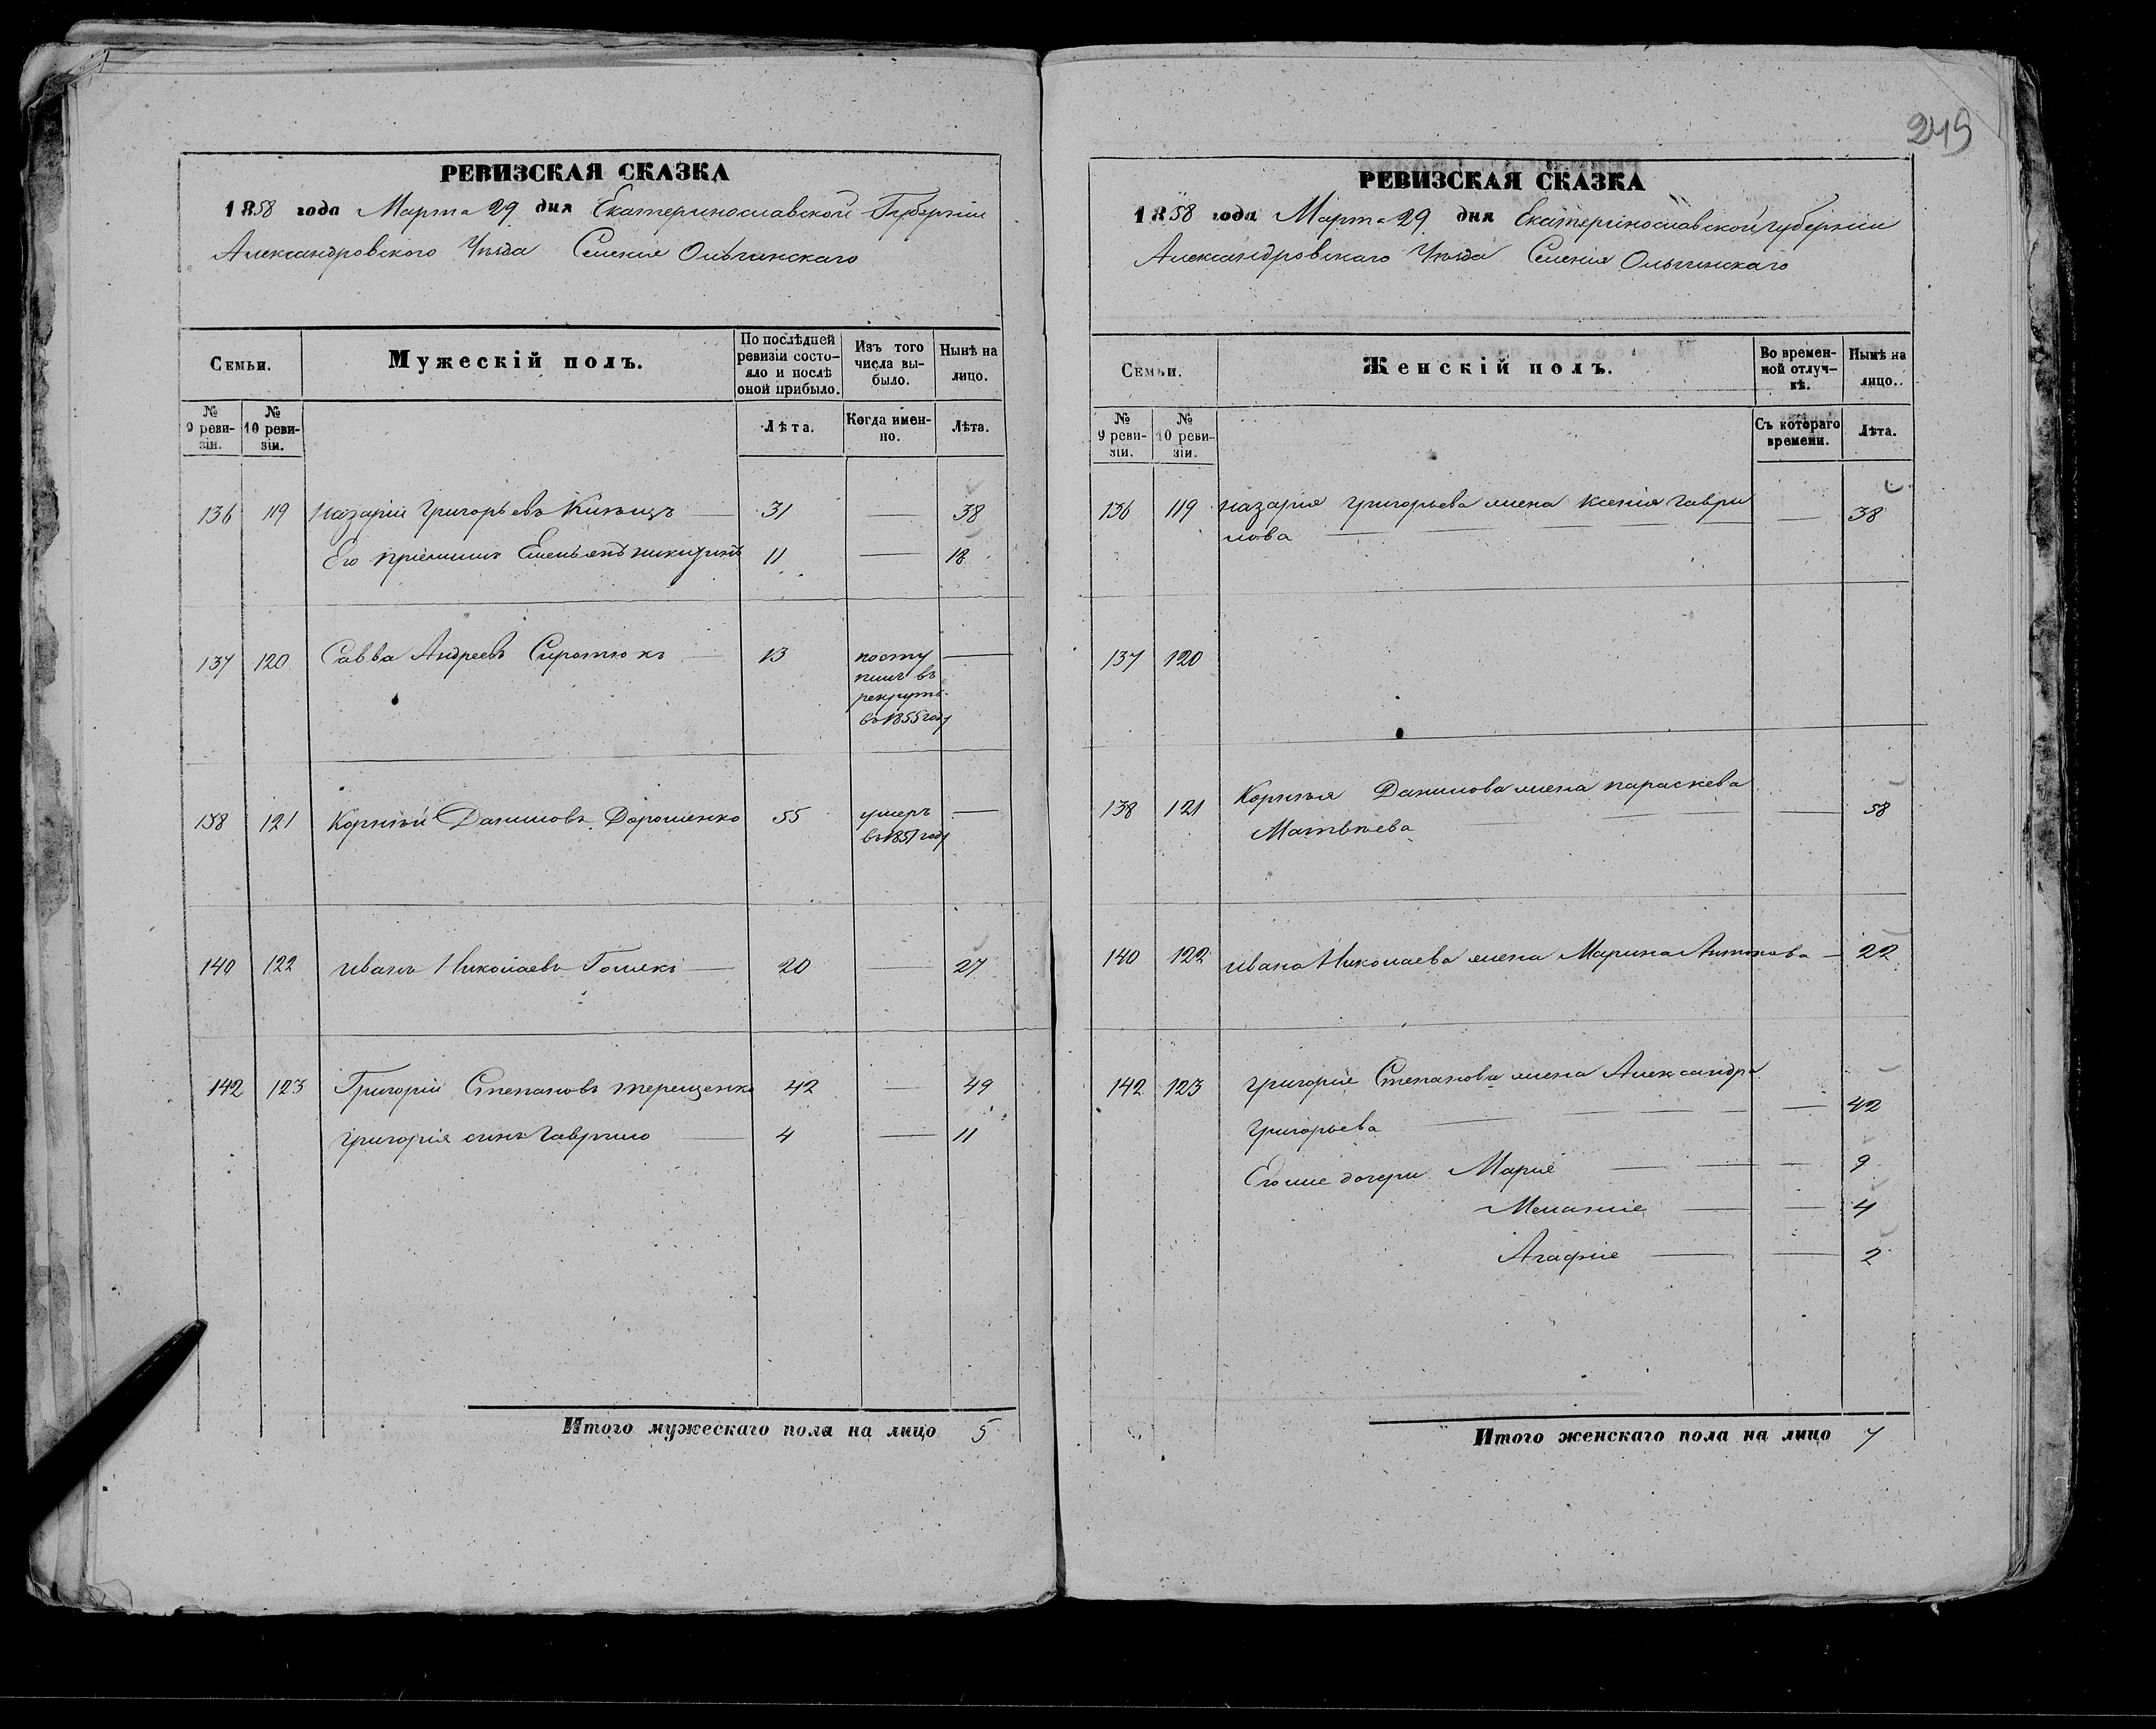 249
РЕВИЗСКАЯ СКАЗКА
1858 года Марта 29 дня Екатеринославской Губерніи
Александровского Уѣзда Селенія Ольгинскаго
Семьи.
Мужескій полъ.
По послѣдней ревизіи состо-
яло и послѣ оной прибыло.
Изъ того числа вы-
было.
Нынѣ на лицо.
№ 9 реви-
зіи.
№ 10 реви-
зіи.
Лѣта.
Когда имен-
но.
Лѣта.
136 119 Назарій Григорьевъ 31 — 38
Его пріемышъ Емельянъ Никитинъ 11 — 18
137 120 Савва Андреевъ Сиротюкъ 13 посту —
пилъ въ
рекруты
въ 1855 году
138 121 Корнѣй Даниловъ Дорошенко 55 умеръ —
въ 1851 году
140 122 Иванъ Николаевъ 20 — 27
142 123 Григорій Степановъ Терещенко 42 — 49
Григорія сынъ Гаврило 4 — 11
Итого мужескаго пола на лицо 5
РЕВИЗСКАЯ СКАЗКА
1858 года Марта 29 дня Екатеринославской губерніи
Александровскаго Уѣзда Селенія Ольгинскаго
Семьи.
Женскій полъ.
Во времен-
ной отлуч-
кѣ.
Нынѣ на лицо.
№ 9 реви-
зіи.
№ 10 реви-
зіи.
Съ котораго времени.
Лѣта.
136 119 Назарія Григорьева жена Ксенія Гаври
лова — 38
137 120
138 121 Корнѣя Данилова жена Параскева
Матвѣева — 58
140 122 Ивана Николаева жена Марина Антонова — 22
142 123 Григорія Степанова жена Александра
Григорьева — 42
Его же дочери Маріе — 9
Меланіе — 4
Агафіе — 2
Итого женскаго пола на лицо 7